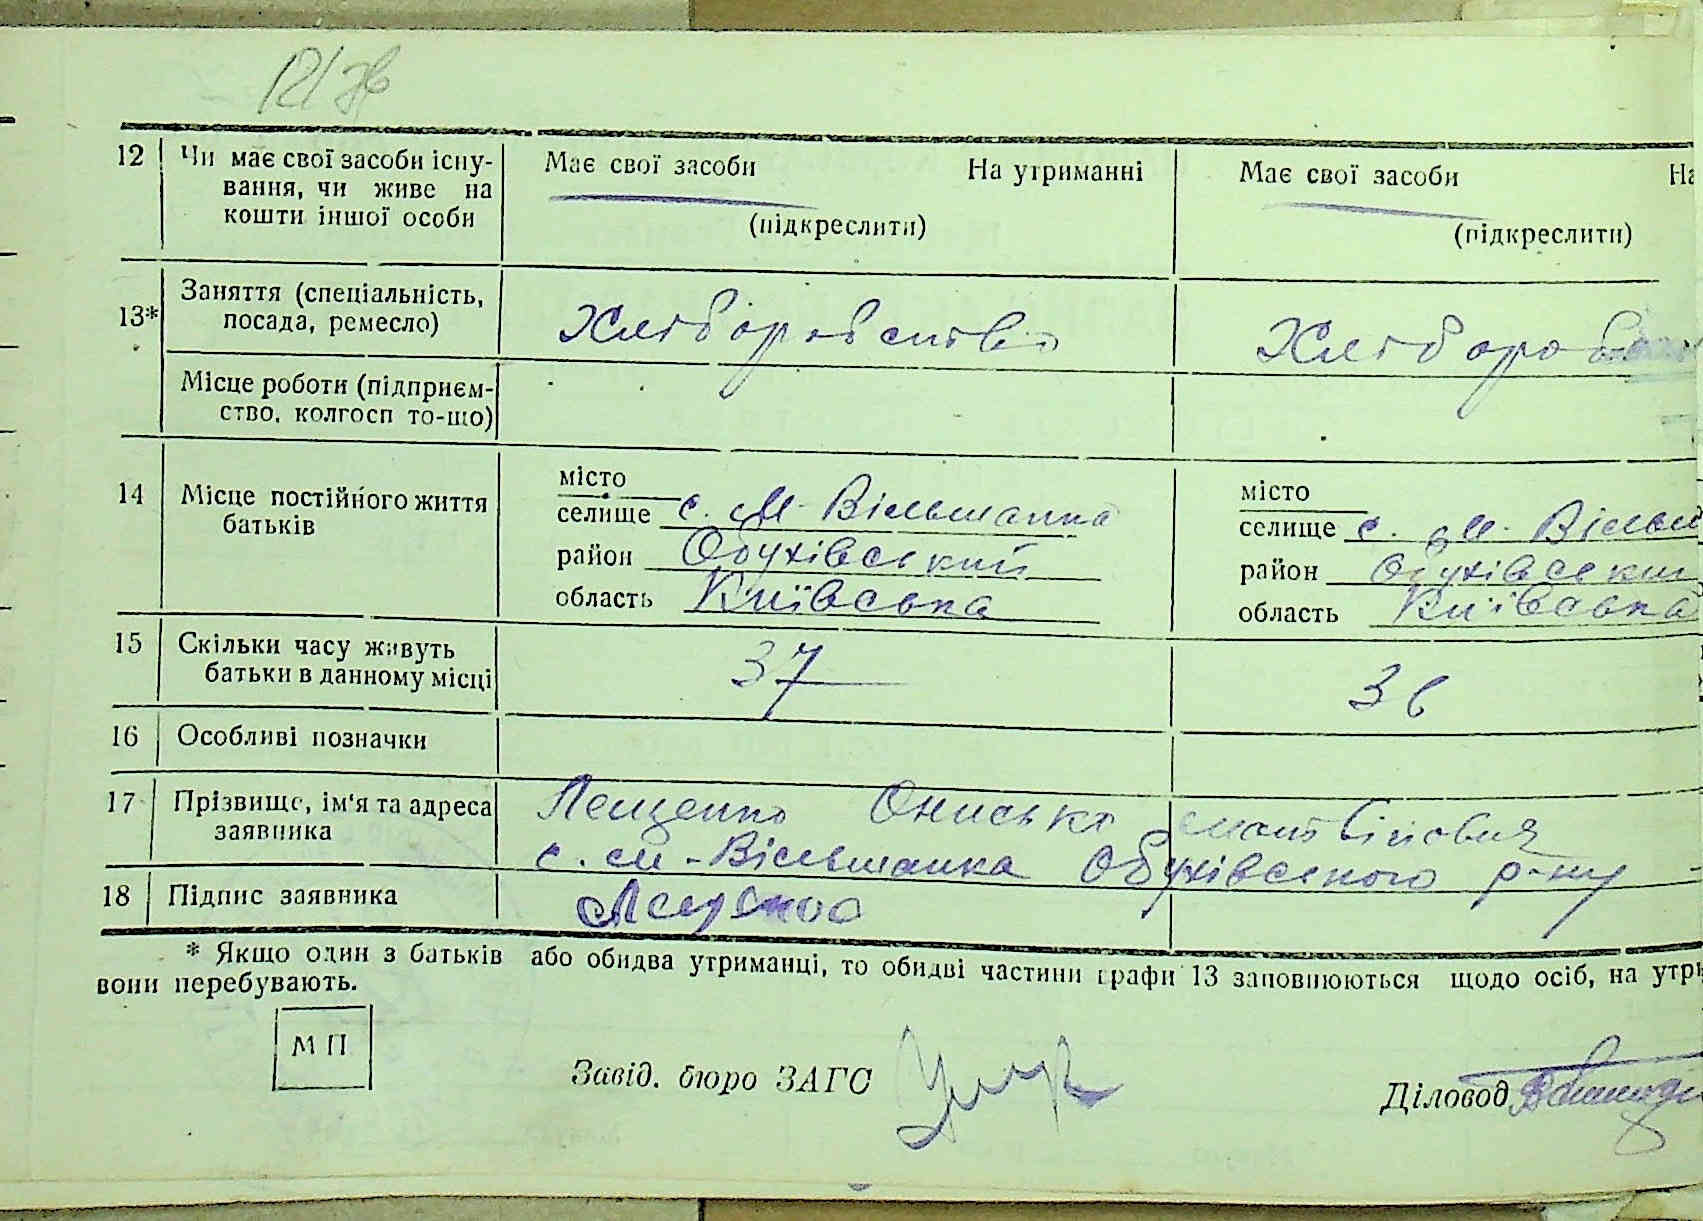 12 Чи має свої засоби існу- Має свої засоби На утриманні Має свої засоби На
вання, чи живе на
кошти іншої особи (підкреслити) (підкреслити)
13* Заняття (спеціальність,
посада, ремесло) Хліборобство Хлібороб
Місце роботи (підприєм-
ство, колгосп то-що)
14 Місце постійного життя
батьків
місто місто
селище с. М-Вільшанка селище с. М-Вільш
район Обухівський район Обухівськи
область Київська область Київська
15 Скільки часу живуть
батьки в данному місці 37 36
16 Особливі позначки
17 Прізвище, ім'я та адреса Лещенко Онисько
заявника с. М-Вільшанка Обухівського р-ну
18 Підпис заявника Лещенко
* Якщо один з батьків або обидва утриманці, то обидві частини графи 13 заповнюються щодо осіб, на утри
вони перебувають.
М П
Завід. бюро ЗАГС
Діловод